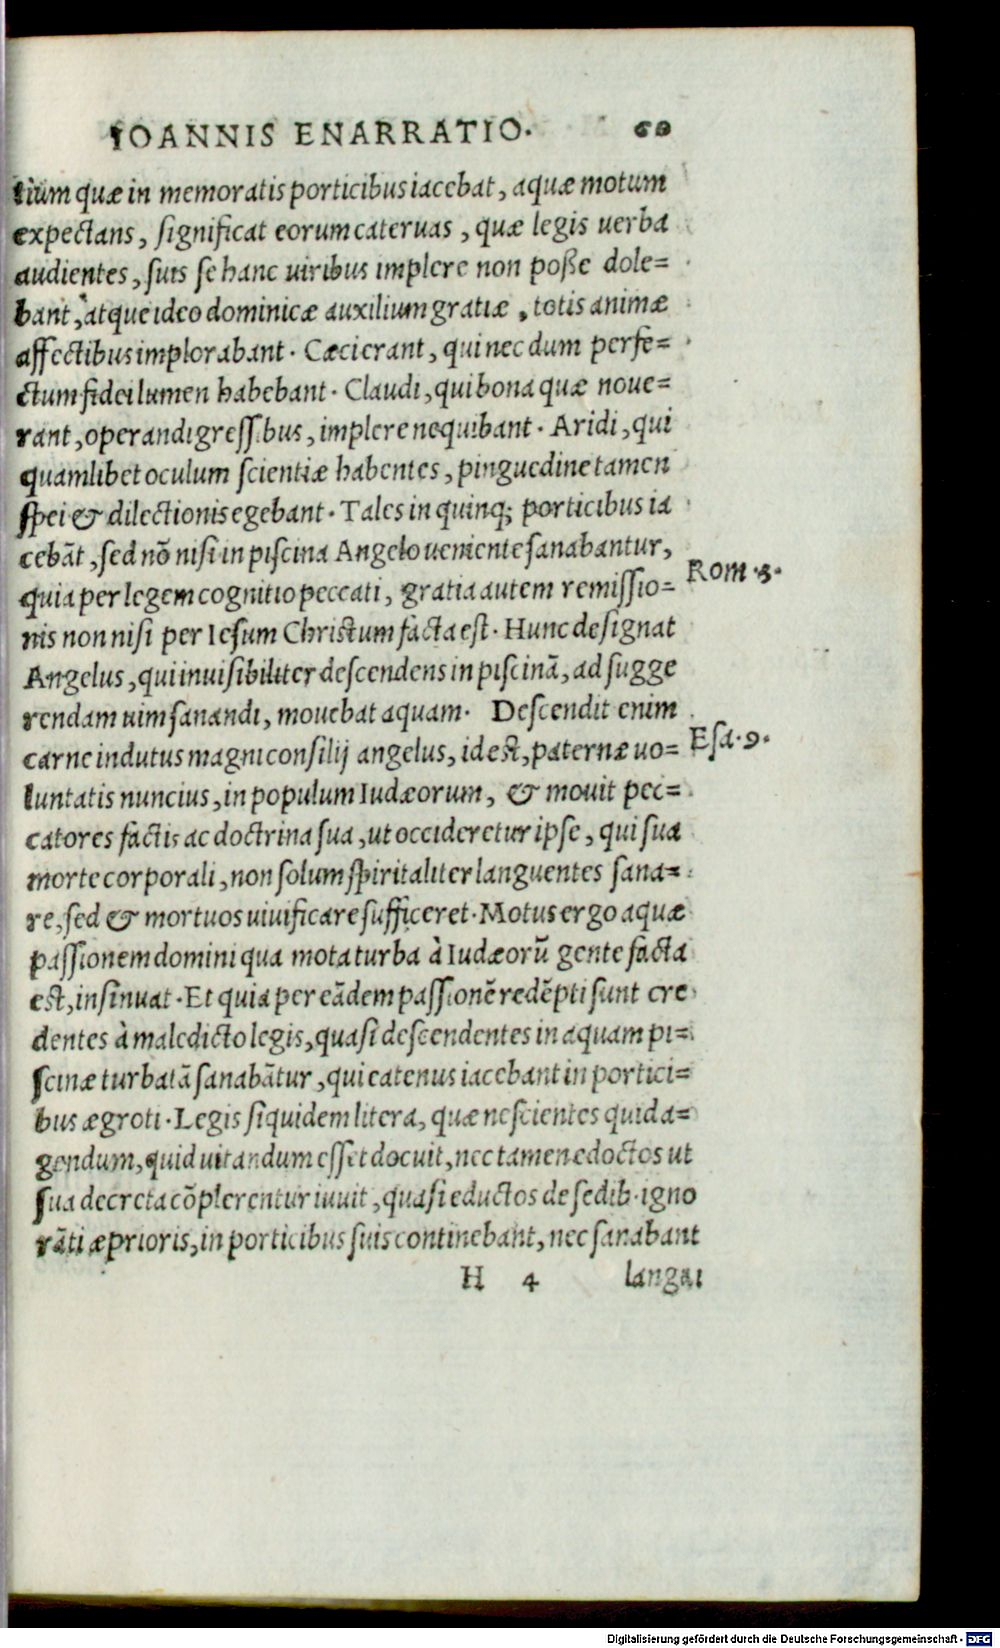 IOANNIS ENARRATIO. 60
tium quæ in memoratis porticibus iacebat, aquæ motum
expectans, significat eorum cateruas, quæ legis uerba
audientes, suis se hanc uiribus implere non posse dole=
bant, atque ideo dominicæ auxilium gratiæ, totis animæ
affectibus implorabant. Cæci erant, qui nec dum perfe=
ctum fidei lumen habebant. Claudi, qui bona quæ noue=
rant, operandi gressibus, implere nequibant. Aridi, qui
quamlibet oculum scientiæ habentes, pinguedine tamen
spei & dilectionis egebant. Tales in quinq; porticibus ia
cebāt, sed nō nisi in piscina Angelo ueniente sanabantur,
quia per legem cognitio peccati, gratia autem remissio= Rom.3.
nis non nisi per Iesum Christum facta est. Hunc designat
Angelus, qui inuisibiliter descendens in piscinā, ad sugge
rendam uim sanandi, mouebat aquam. Descendit enim
carne indutus magni consilij angelus, id est, paternæ uo= Esa.9.
luntatis nuncius, in populum Iudæorum, & mouit pec=
catores factis ac doctrina sua, ut occideretur ipse, qui sua
morte corporali, non solum spiritaliter languentes sana=
re, sed & mortuos uiuificare sufficeret. Motus ergo aquæ
passionem domini qua mota turba à Iudæorū gente facta
est, insinuat. Et quia per eādem passionē redēpti sunt cre
dentes à maledicto legis, quasi descendentes in aquam pi=
scinæ turbatā sanabātur, qui eatenus iacebant in portici=
bus ægroti. Legis siquidem litera, quæ nescientes quid a=
gendum, quid uitandum esset docuit, nec tamen edoctos ut
sua decreta cōplerentur iuuit, quasi eductos de sedib. igno
rātiæ prioris, in porticibus suis continebant, nec sanabant
H 4 langui
Digitalisierung gefördert durch die Deutsche Forschungsgemeinschaft - DFG